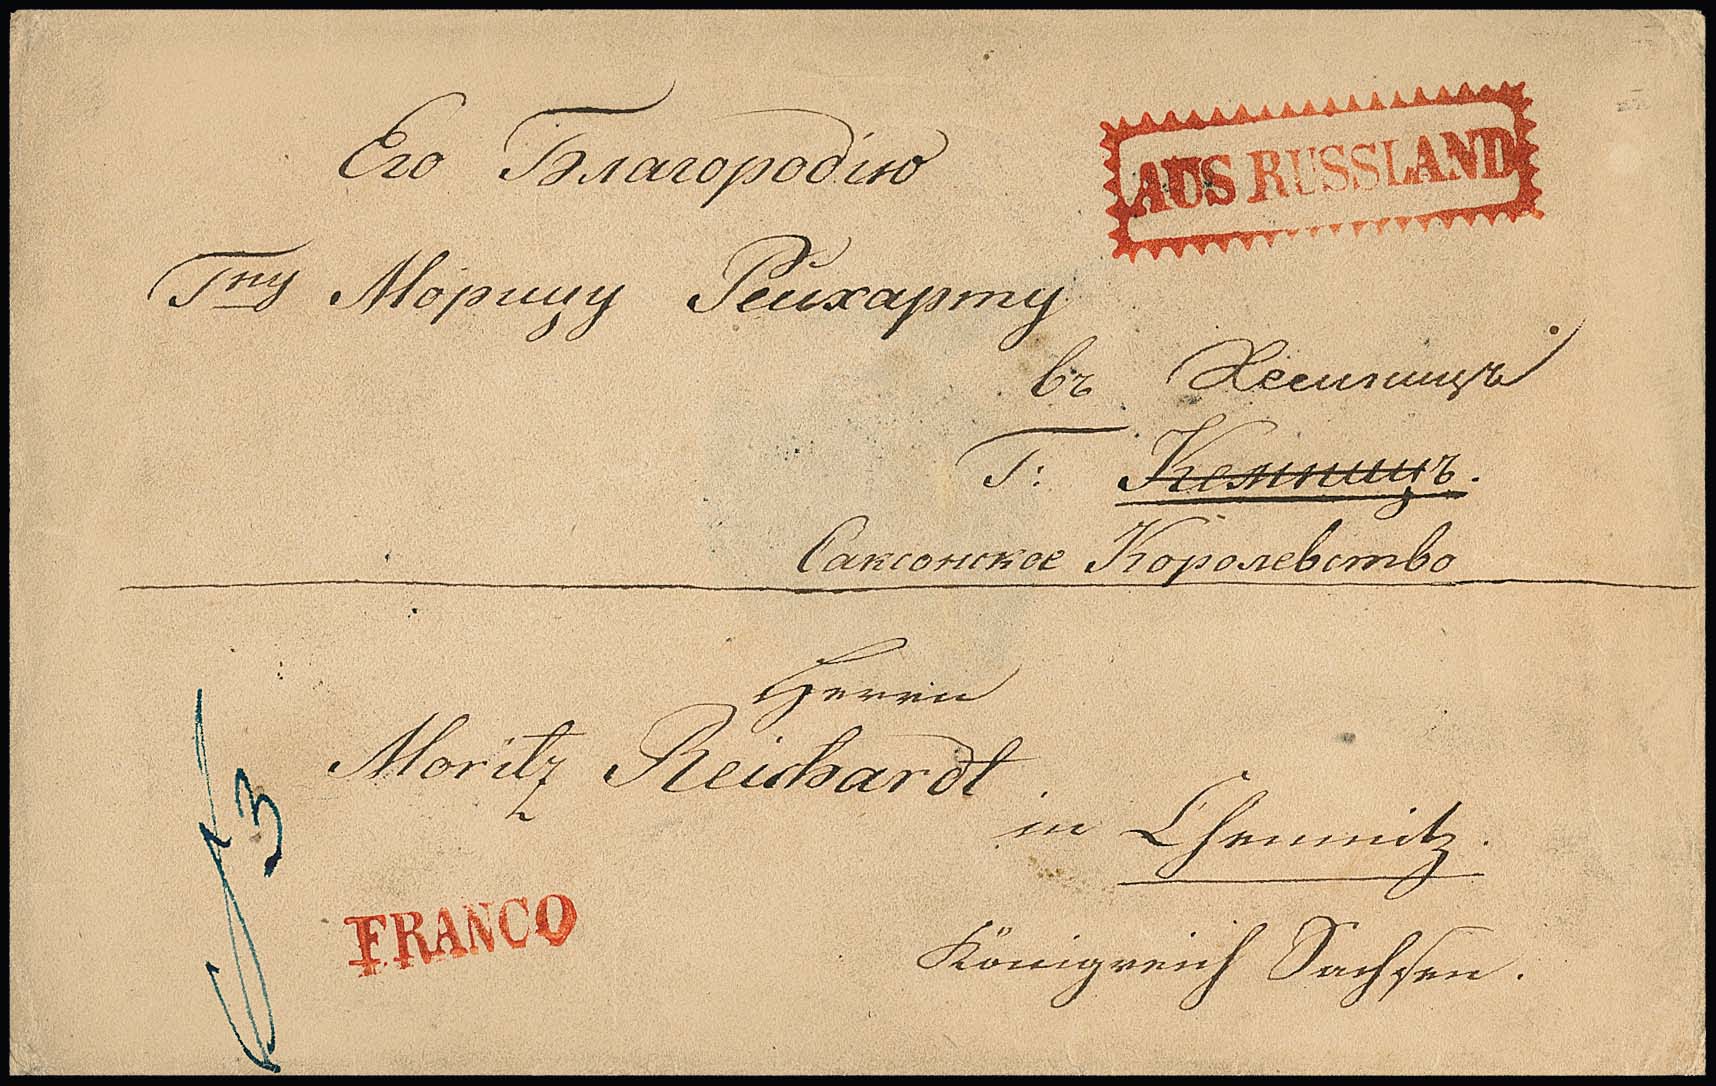 Его Благородію
AUS RUSSLAND
Гну Морицу Рейхарту
въ Хемницъ
Г: Кемницъ.
Саксонское Королевство
Herrn
Moritz Reichardt
in Chemnitz.
3
FRANCO
Königreich Sachsen.